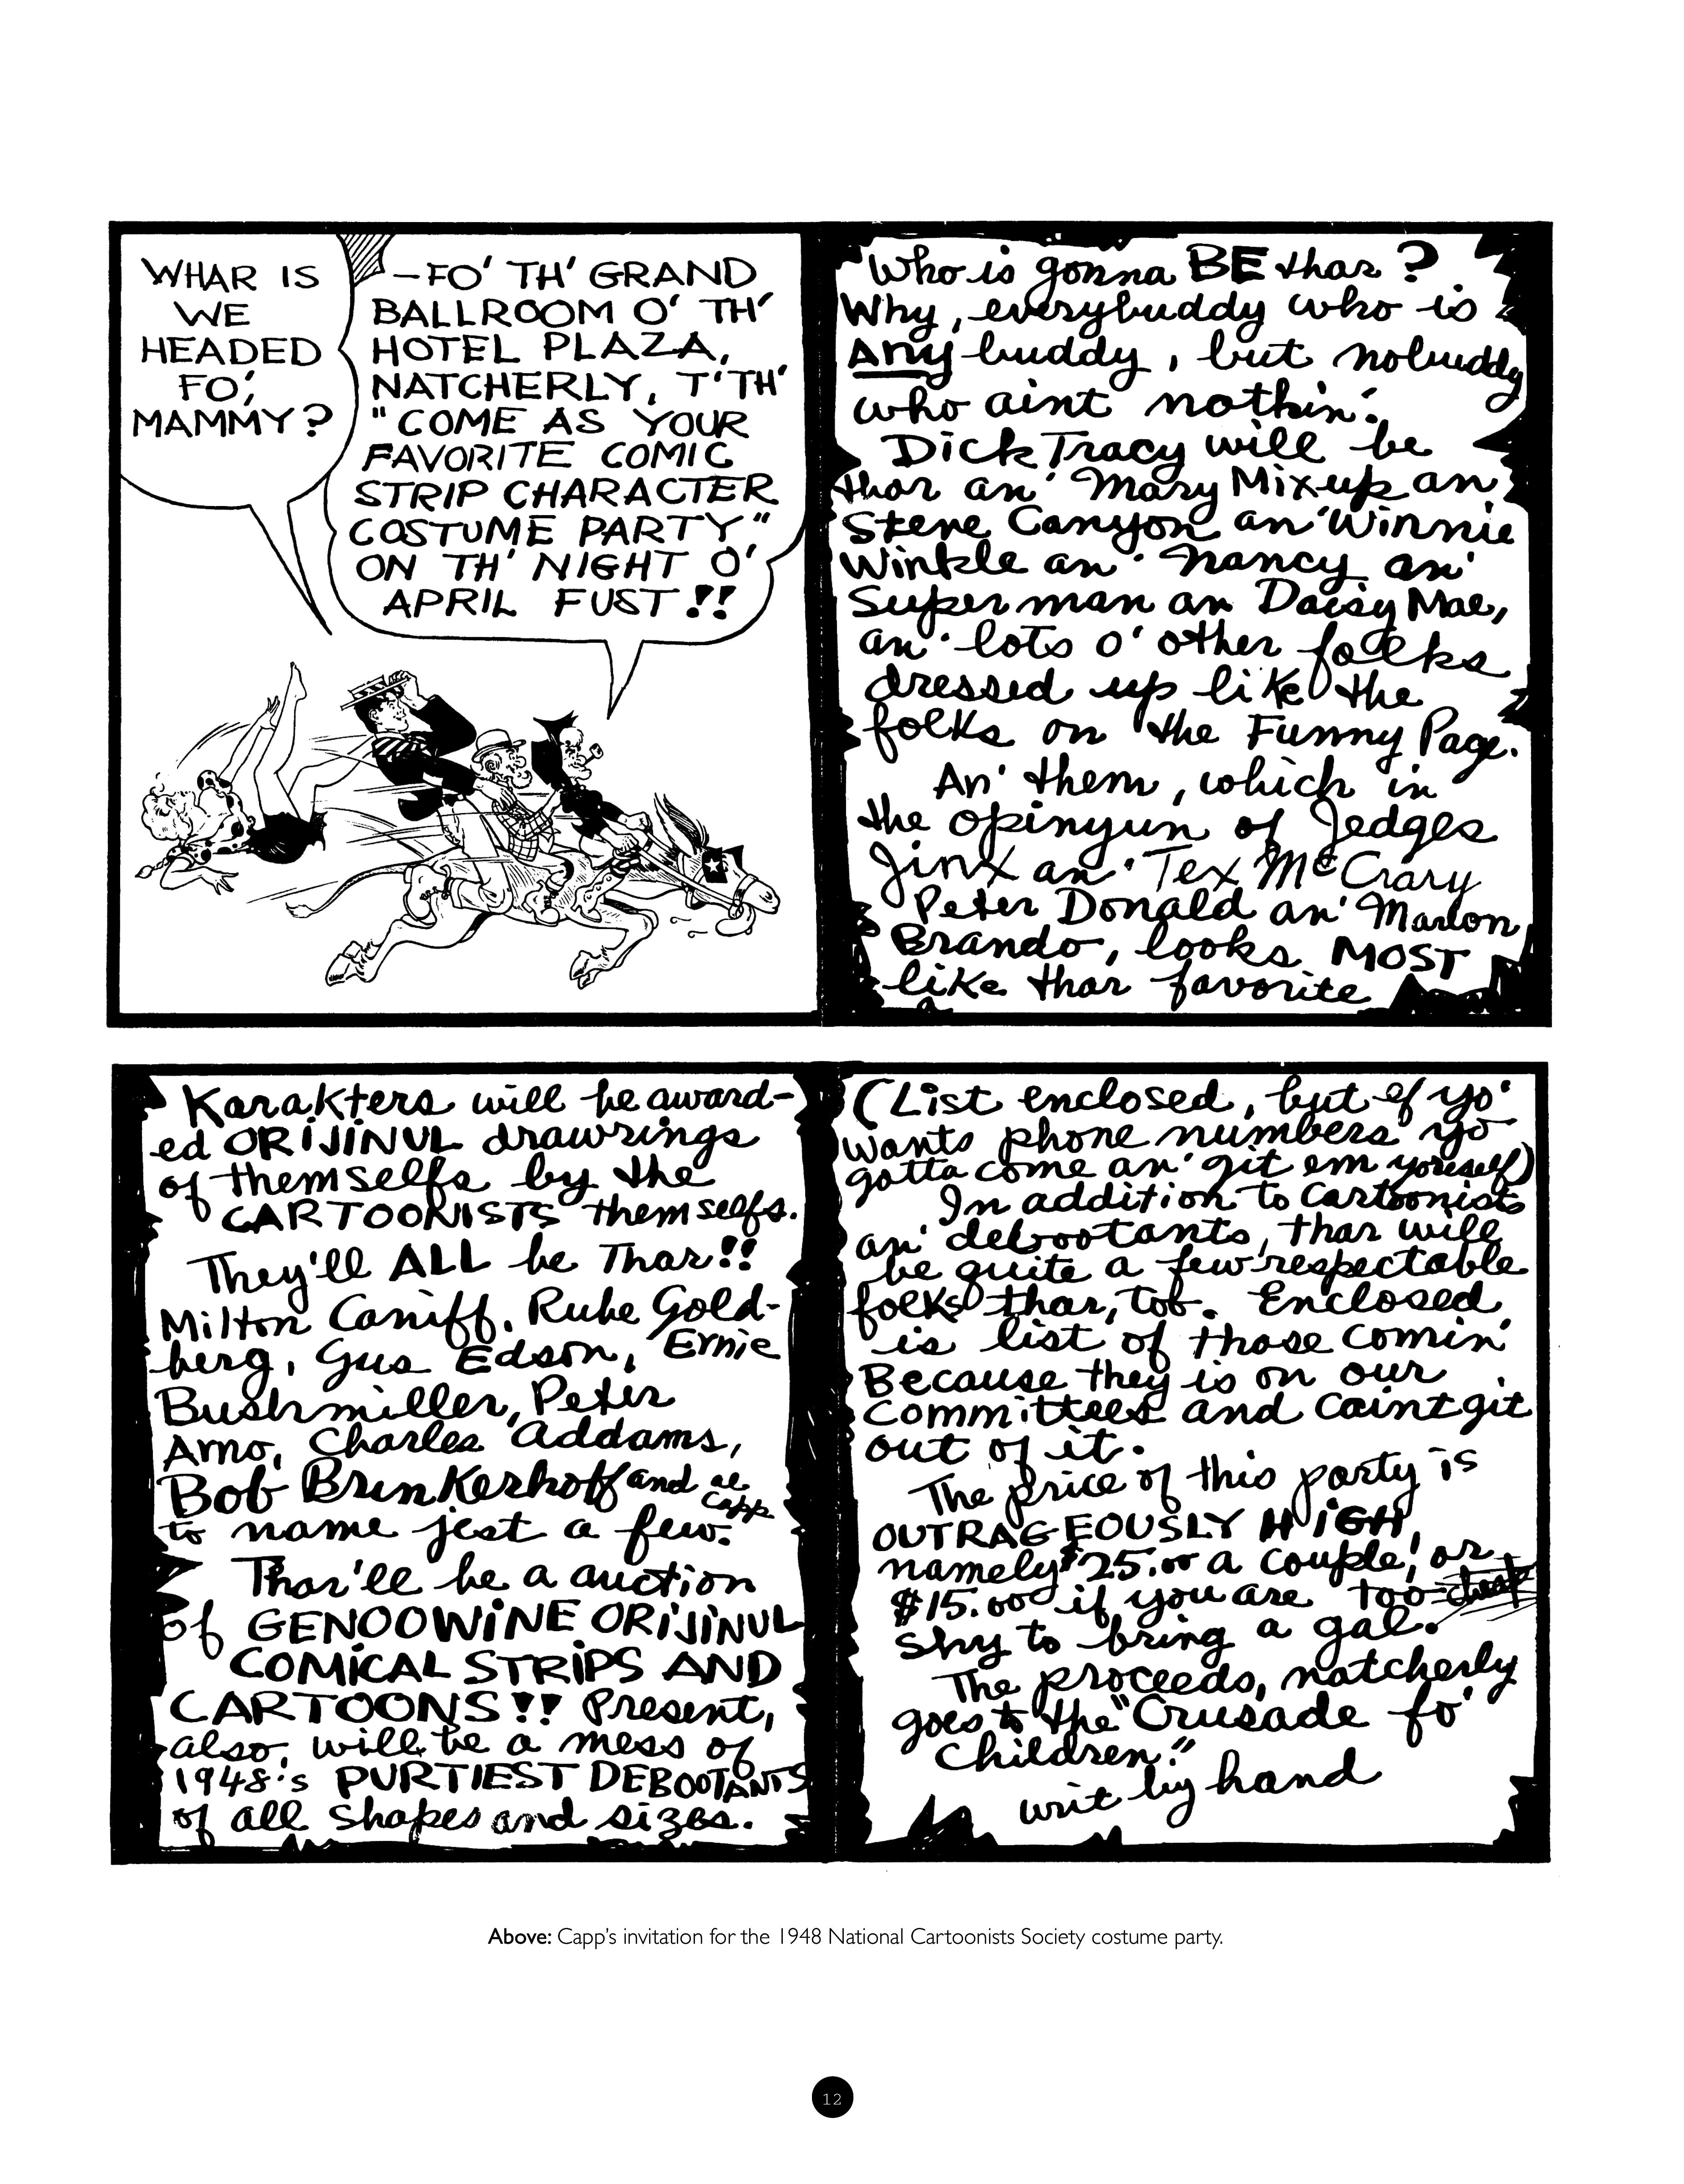 WHAR IS
WE
HEADED
FO',
MAMMY?
—FO' TH' GRAND
BALLROOM O' TH'
HOTEL PLAZA,
NATCHERLY, T'TH'
"COME AS YOUR
FAVORITE COMIC
STRIP CHARACTER
COSTUME PARTY"
ON TH' NIGHT O'
APRIL FUST!!
Who is gonna BE thar?
Why, everybuddy who is
Any buddy, but nobuddy
who aint nothin'.
Dick Tracy will be
thar an' Mary Mixup an'
Steve Canyon an' Winnie
Winkle an' Nancy an'
Superman an Daisy Mae,
an' lots o' other folks
dressed up like the
folks on the Funny Page.
An' them, which in
the opinyun of Jedges
Jinx an' Tex McCrary
Peter Donald an' Marlon
Brando, looks MOST
like thar favorite
Karakters will be award-
ed ORIJINUL drawrings
of themselfs by the
CARTOONISTS themselfs.
They'll ALL be Thar!!
Milton Caniff, Rube Gold-
berg, Gus Edson, Ernie
Bushmiller, Peter
Arno, Charles Addams,
Bob Brinkerhoff and al
Capp
to name jest a few.
Thar'll be a auction
of GENOOWINE ORIJINUL
COMICAL STRIPS AND
CARTOONS!! Present,
also, will be a mess of
1948's PURTIEST DEBOOTANTS
of all shapes and sizes.
(List enclosed, but ef yo'
wants phone numbers yo'
gotta come an' git em yoreself)
In addition to Cartoonists
an' debootants, thar will
be quite a few respectable
folks thar, too. Enclosed
is list of those comin'
Because they is on our
Committees and caint git
out of it.
The price of this party is
OUTRAGEOUSLY HIGH,
namely $25.00 a couple, or
$15.00 if you are too cheap
shy to bring a gal.
The proceeds, natcherly
goes to the "Crusade fo'
Children."
writ by hand
Above: Capp's invitation for the 1948 National Cartoonists Society costume party.
12